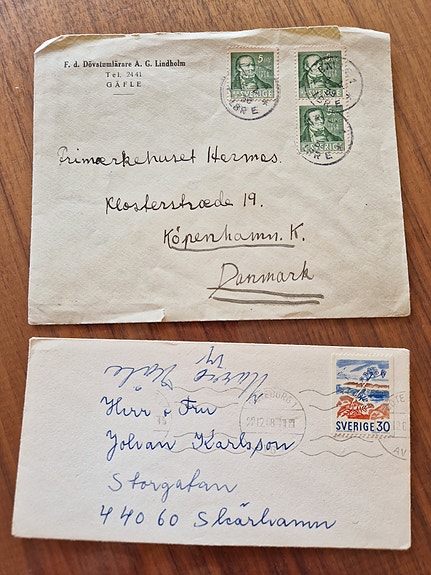 F. d. Dövstumlärare A. G. Lindholm
Tel. 24 41
GÄFLE
5
SVERIGE
SVERIGE
SVERIGE
Frimærkehuset Hermes.
Klosterstræde 19.
Köpenhamn. K.
Danmark
Herr o Fru
Johan Karlsson
Storgatan
440 60 Skärhamn
SVERIGE 30